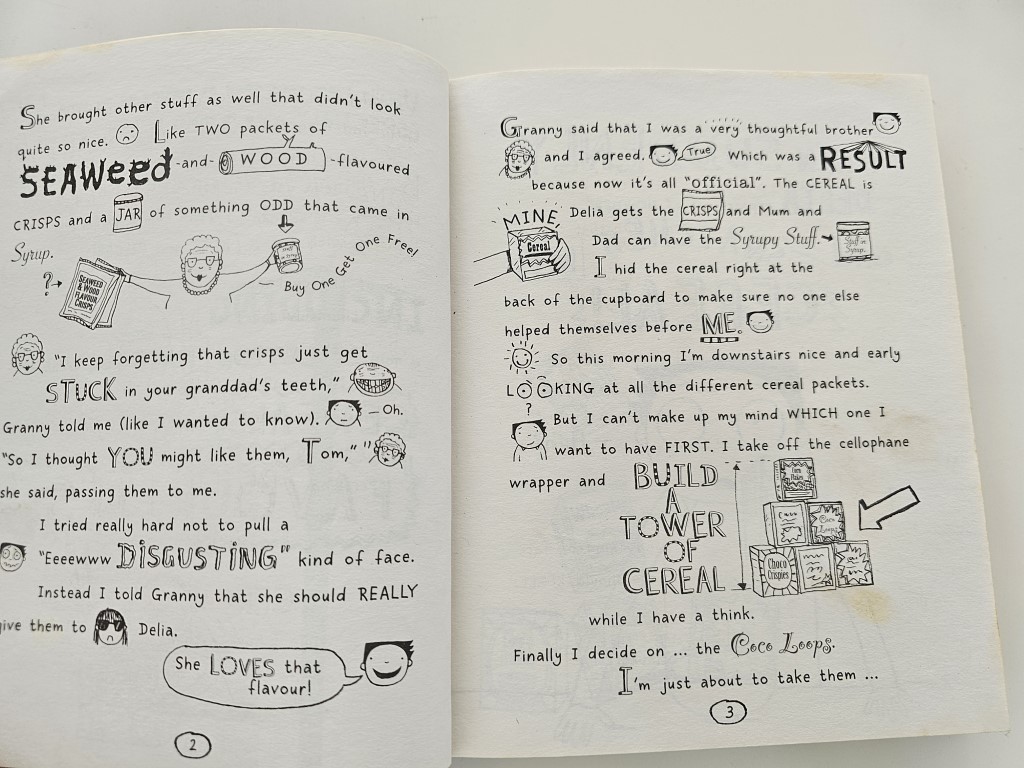 She brought other stuff as well that didn't look
quite so nice. Like TWO packets of
SEAWeed -and- WOOD -flavoured
CRISPS and a JAR of something ODD that came in
Syrup.
?
SEAWEED & WOOD FLAVOUR CRISPS
Buy One Get One Free!
"I keep forgetting that crisps just get
STUCK in your granddad's teeth,"
Granny told me (like I wanted to know). – Oh.
"So I thought YOU might like them, Tom,"
she said, passing them to me.
I tried really hard not to pull a
"Eeeewww DISGUSTING" kind of face.
Instead I told Granny that she should REALLY
give them to Delia.
She LOVES that
flavour!
2
Granny said that I was a very thoughtful brother
and I agreed. True Which was a RESULT
because now it's all "official". The CEREAL is
MINE, Delia gets the CRISPS and Mum and
Cereal
Dad can have the Syrupy Stuff. Stuff in Syrup.
I hid the cereal right at the
back of the cupboard to make sure no one else
helped themselves before ME.
So this morning I'm downstairs nice and early
LOOKING at all the different cereal packets.
?
But I can't make up my mind WHICH one I
want to have FIRST. I take off the cellophane
wrapper and BUILD
A
TOWER
OF
CEREAL
Corn Flakes
Coco Loops
Choco Crispies
while I have a think.
Finally I decide on ... the Coco Loops.
I'm just about to take them ...
3